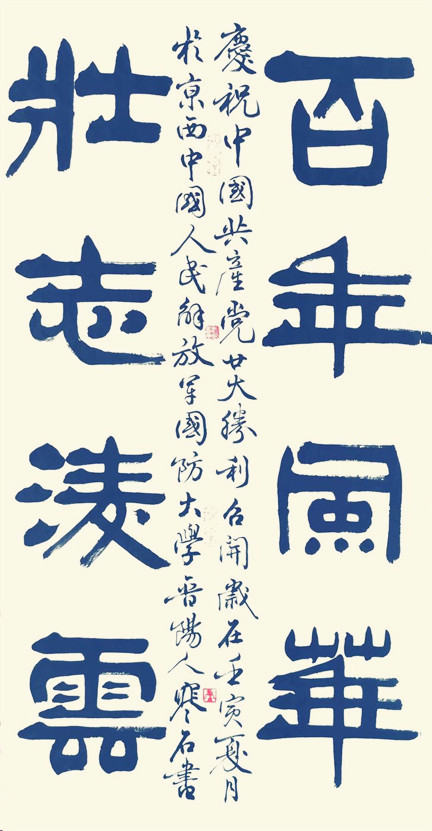 百年風華
慶祝中國共產党廿大勝利召開歲在壬寅夏月
於京西中國人民解放軍國防大學晉陽人寒石書
壯志淩雲